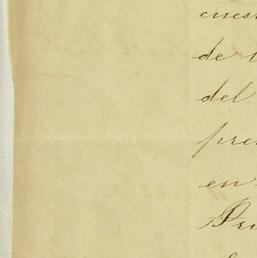 cues
de
del
pre
en
Pri